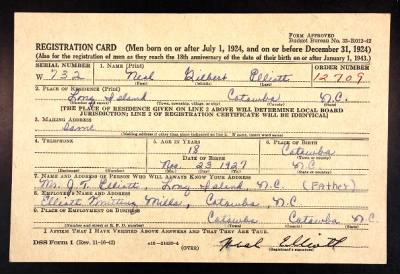 FORM APPROVED
Budget Bureau No. 33-R012-42
REGISTRATION CARD—(Men born on or after July 1, 1924, and on or before December 31, 1924)
(Also for the registration of men as they reach the 18th anniversary of the date of their birth on or after January 1, 1943.)
SERIAL NUMBER 1. NAME (Print) ORDER NUMBER
W 732 Neal Gilbert Elliott 12709
(First) (Middle) (Last)
2. PLACE OF RESIDENCE (Print)
Long Island Catawba N.C.
(Number and street) (Town, township, village, or city) (County) (State)
(THE PLACE OF RESIDENCE GIVEN ON LINE 2 ABOVE WILL DETERMINE LOCAL BOARD
JURISDICTION; LINE 2 OF REGISTRATION CERTIFICATE WILL BE IDENTICAL)
3. MAILING ADDRESS
Same
(Mailing address if other than place indicated on line 2. If same, insert word same)
4. TELEPHONE 5. AGE IN YEARS 6. PLACE OF BIRTH
18 Catawba
DATE OF BIRTH (Town or county)
Nov. 23 1927 N.C.
(Exchange) (Number) (Mo.) (Day) (Yr.) (State or country)
7. NAME AND ADDRESS OF PERSON WHO WILL ALWAYS KNOW YOUR ADDRESS
Mr. J. T. Elliott, Long Island, N.C. (Father)
8. EMPLOYER'S NAME AND ADDRESS
Elliott Knitting Mills, Catawba, N.C.
9. PLACE OF EMPLOYMENT OR BUSINESS
Catawba Catawba N.C.
(Number and street or R. F. D. number) (Town) (County) (State)
I AFFIRM THAT I HAVE VERIFIED ABOVE ANSWERS AND THAT THEY ARE TRUE.
DSS Form 1 (Rev. 11-16-42) (OVER) Neal Elliott